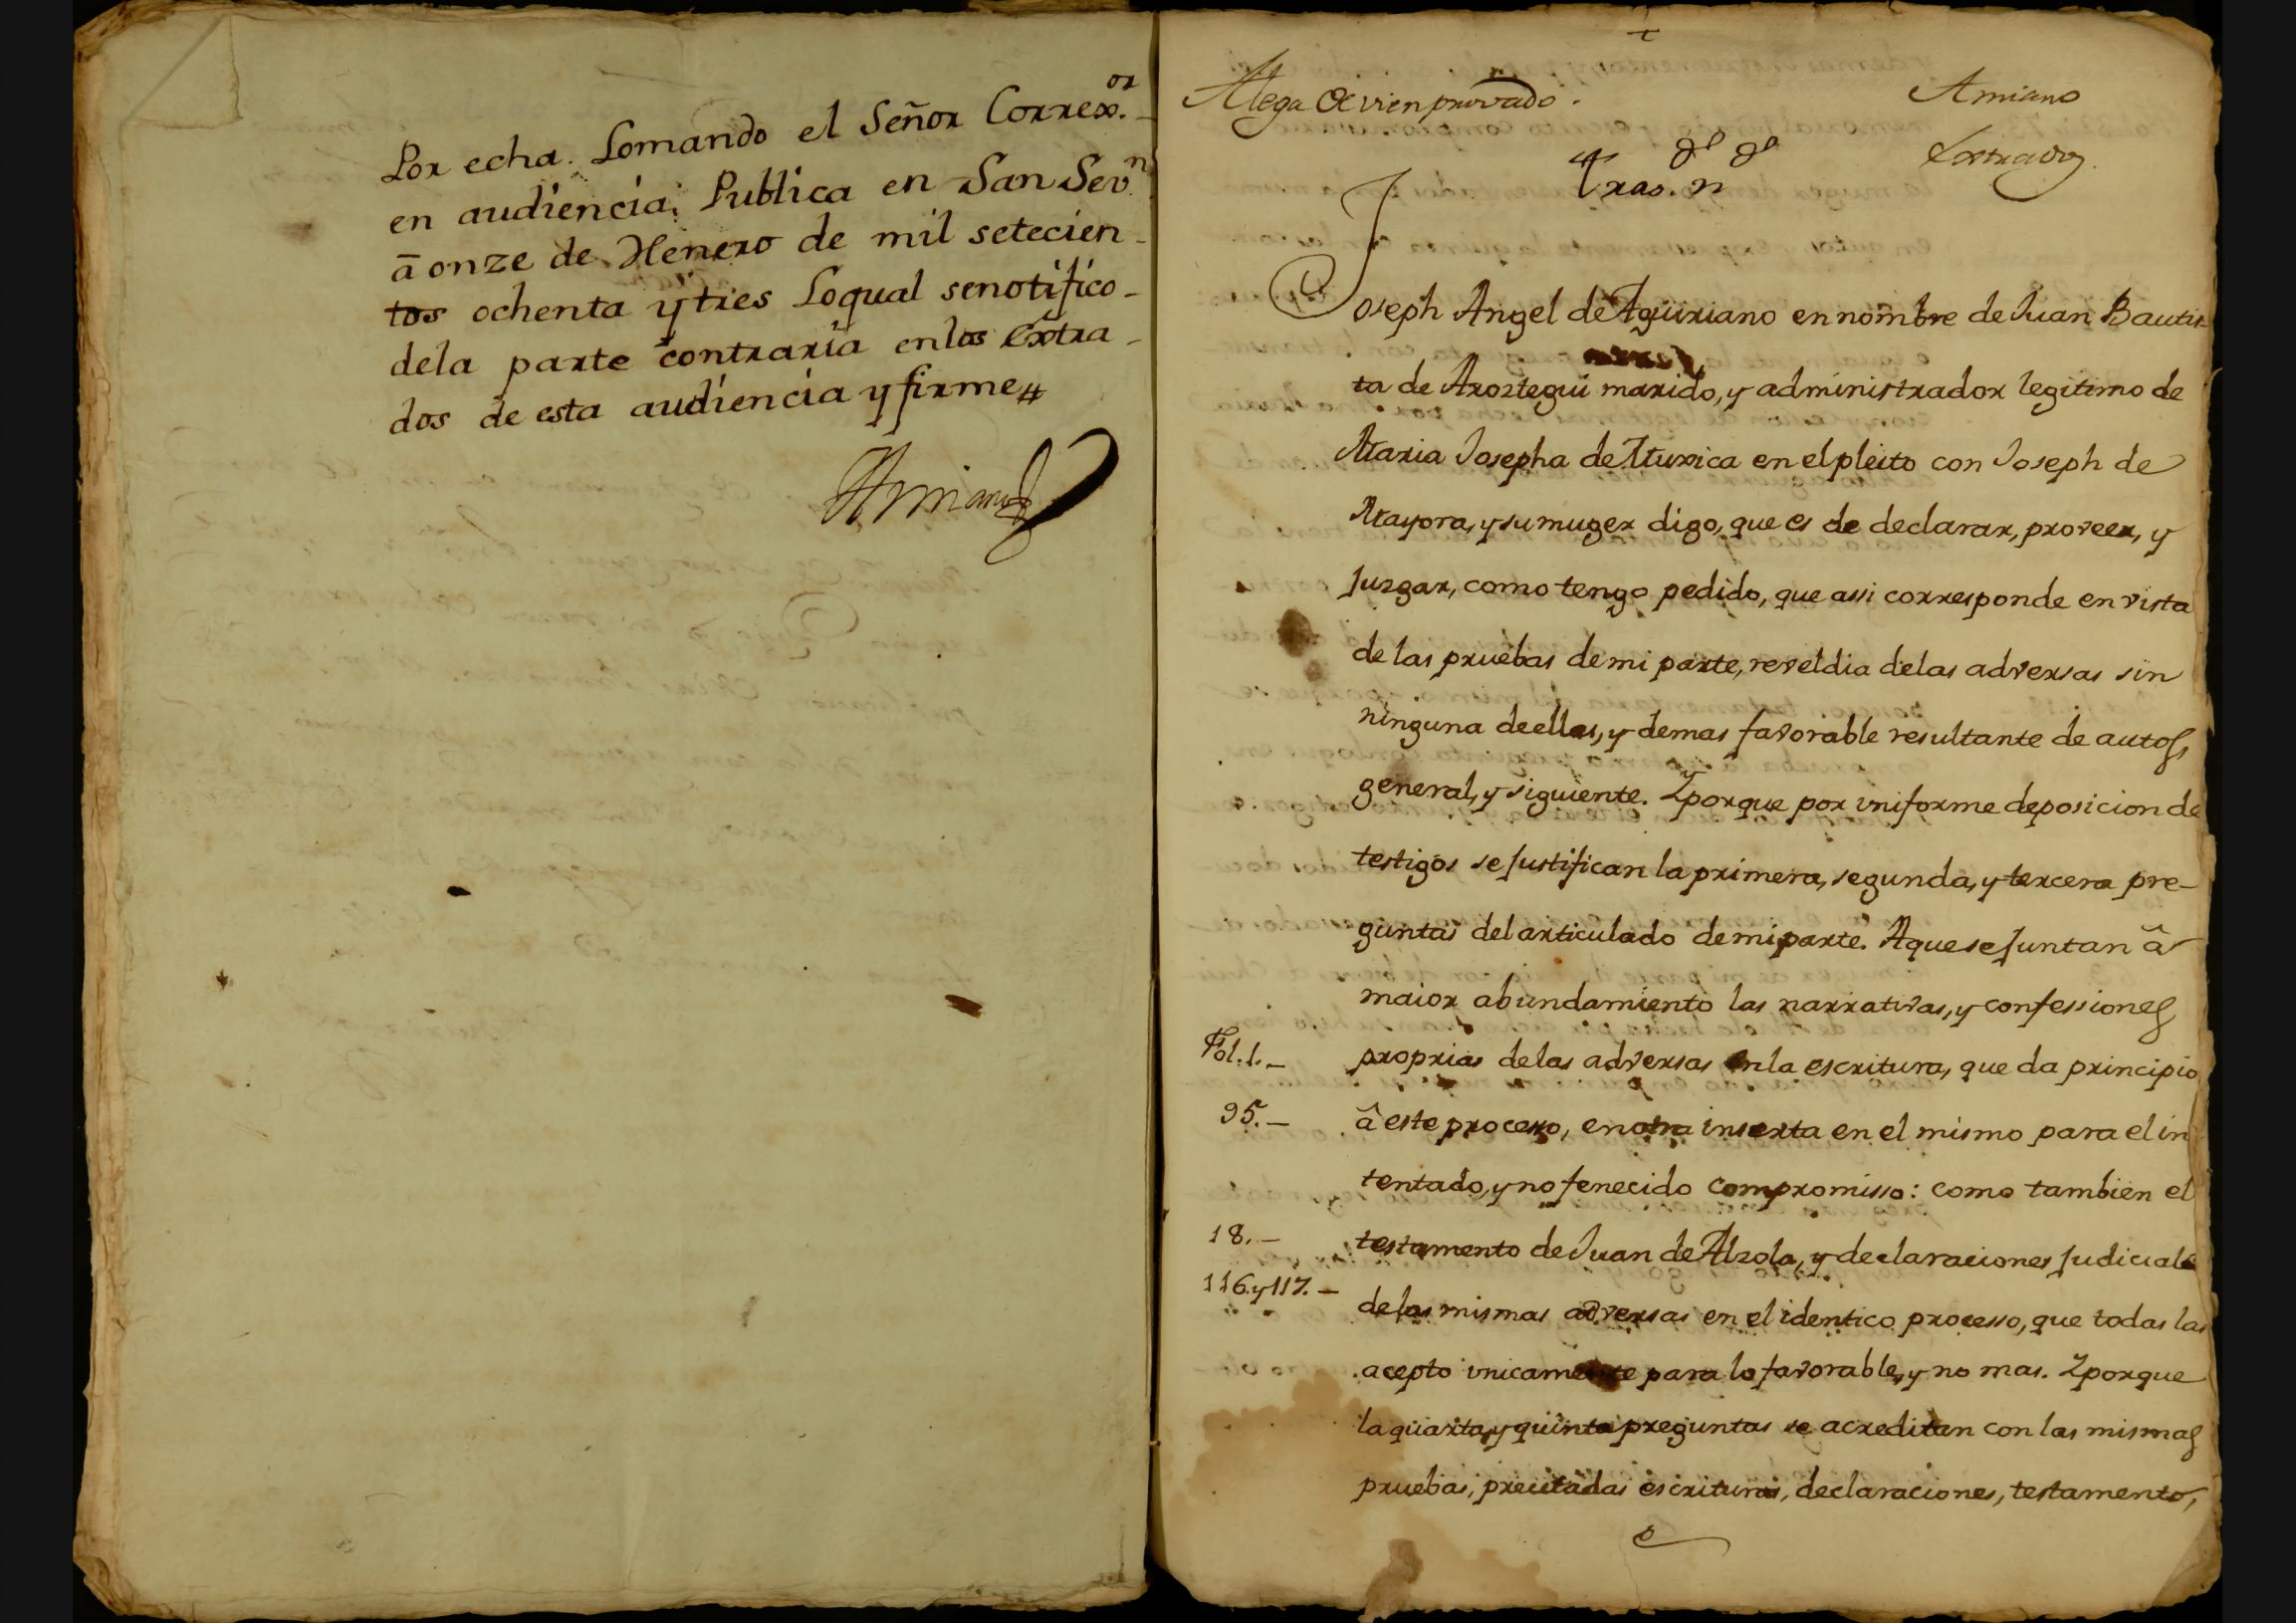 Por echa. Lomando el Señor Correx.or
en audiencia, Publica en San Sevn
ā onze de Henero de mil setecien-
tos ochenta y tres Loqual senotifico-
dela parte contraria enlos extra-
dos de esta audiencia y firme
Amiano
Alega de vien provado.
Amiano
Extrados
Tras.
Joseph Angel de Aguiriano en nombre de Juan Bautis-
ta de Aroztegui marido, y administrador legitimo de
Maria Josepha de Iturrica en el pleito con Joseph de
Mayora, y su muger digo, que es de declarar, proveer, y
Juzgar, como tengo pedido, que assi corresponde en vista
de las pruebas de mi parte, reveldia delas adversas sin
ninguna deellas, y demas favorable resultante de autos,
general, y siguiente. Yporque por uniforme deposicion de
testigos se Justifican la primera, segunda, y tercera pre-
guntas del articulado de mi parte. A que se Juntan â
maior abundamiento las narrativas, y confessiones
Fol. 1.- proprias delas adversas en la escritura, que da principio
95.- â este processo, en otra inserta en el mismo para el in
tentado, y no fenecido compromisso: como tambien el
18.- testamento de Juan de Alzola, y declaraciones Judiciales
116. y 117.- delas mismas adversas en el identico processo, que todas las
acepto unicamente para lo favorable, y no mas. Yporque
la quarta, y quinta preguntas se acreditan con las mismas
pruebas, precitadas escrituras, declaraciones, testamento,